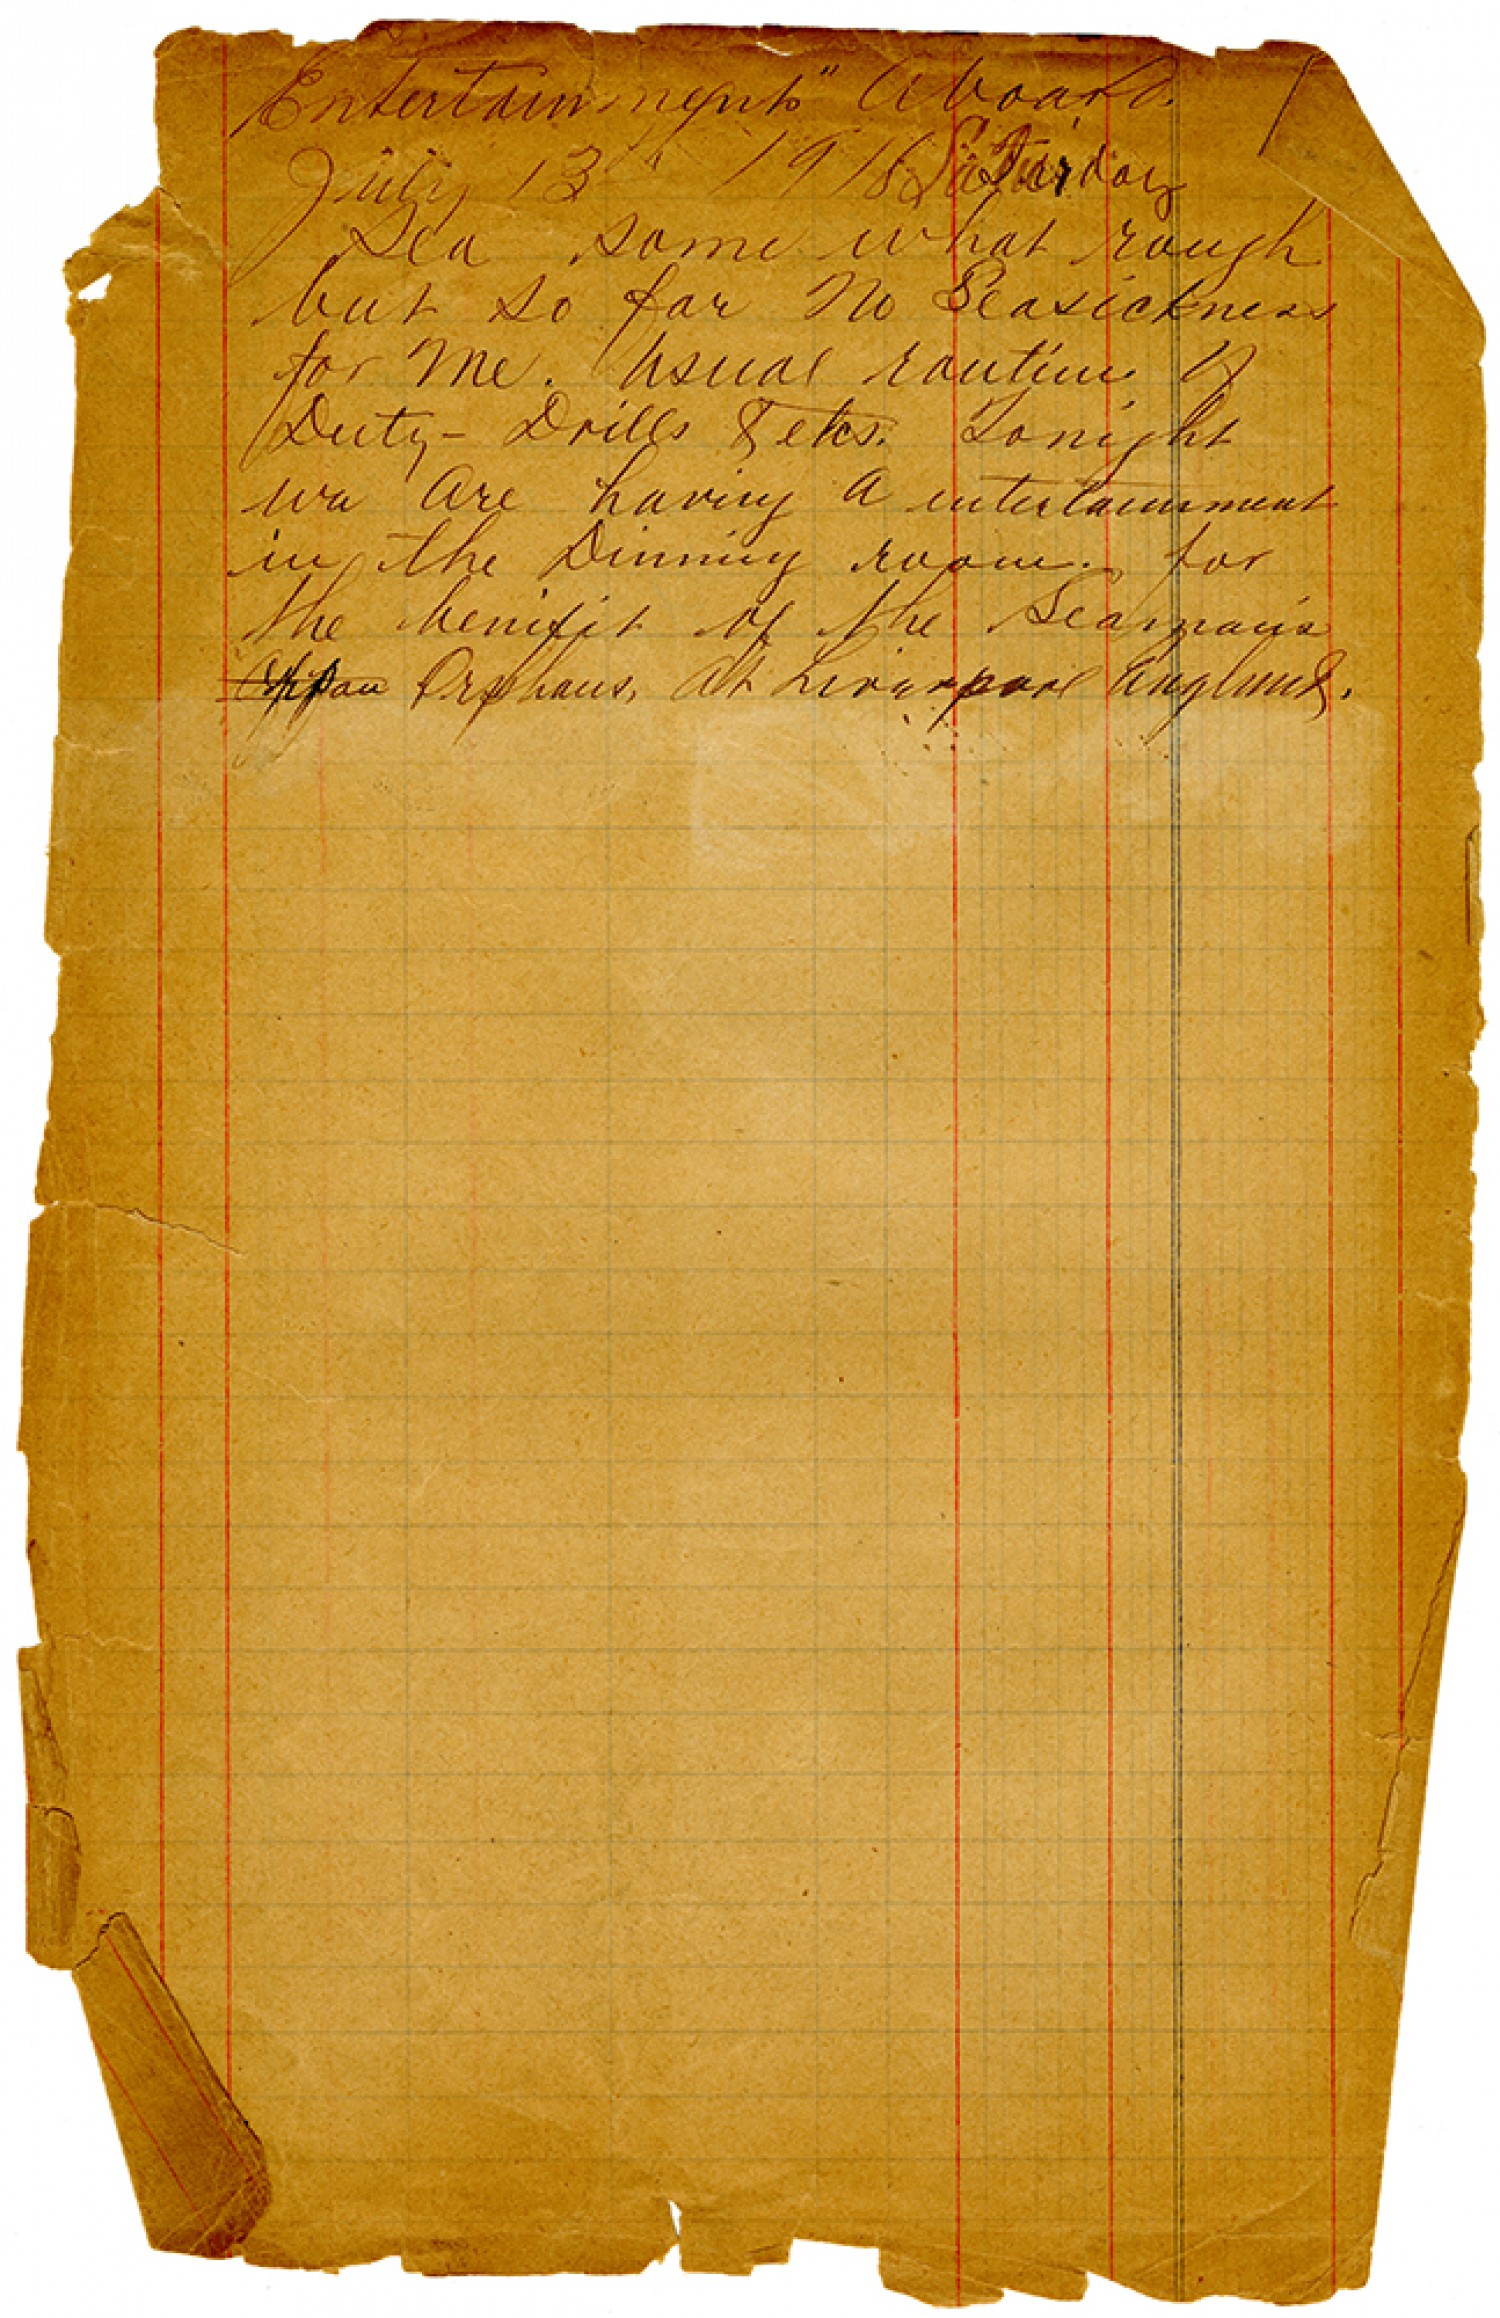 Entertainment" Aboard.
July 13th 1918 Saturday
Sea some what rough
but so far No Seasickness
for Me. Usual routine of
Duty- Drills & etcs. Tonight
we are having a entertainment
in the Dinning room. for
the benifit of the Seaman's
Orphans, At Liverpool England.